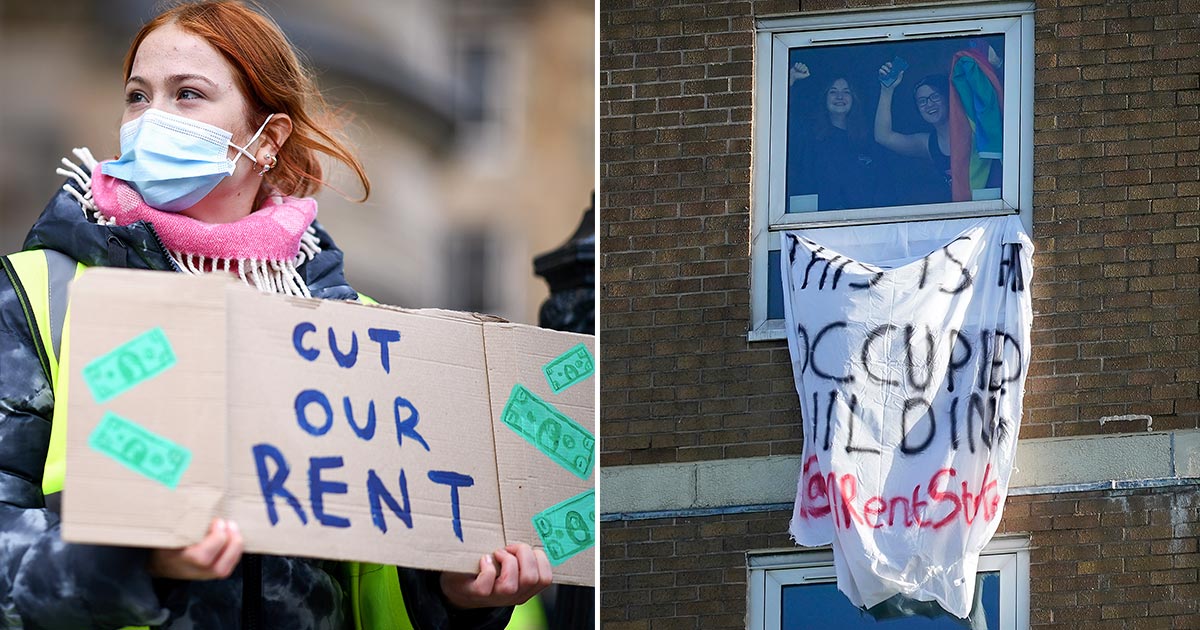 CUT
OUR
RENT
THIS IS
OCCUPIED
BUILDING
RentStrike